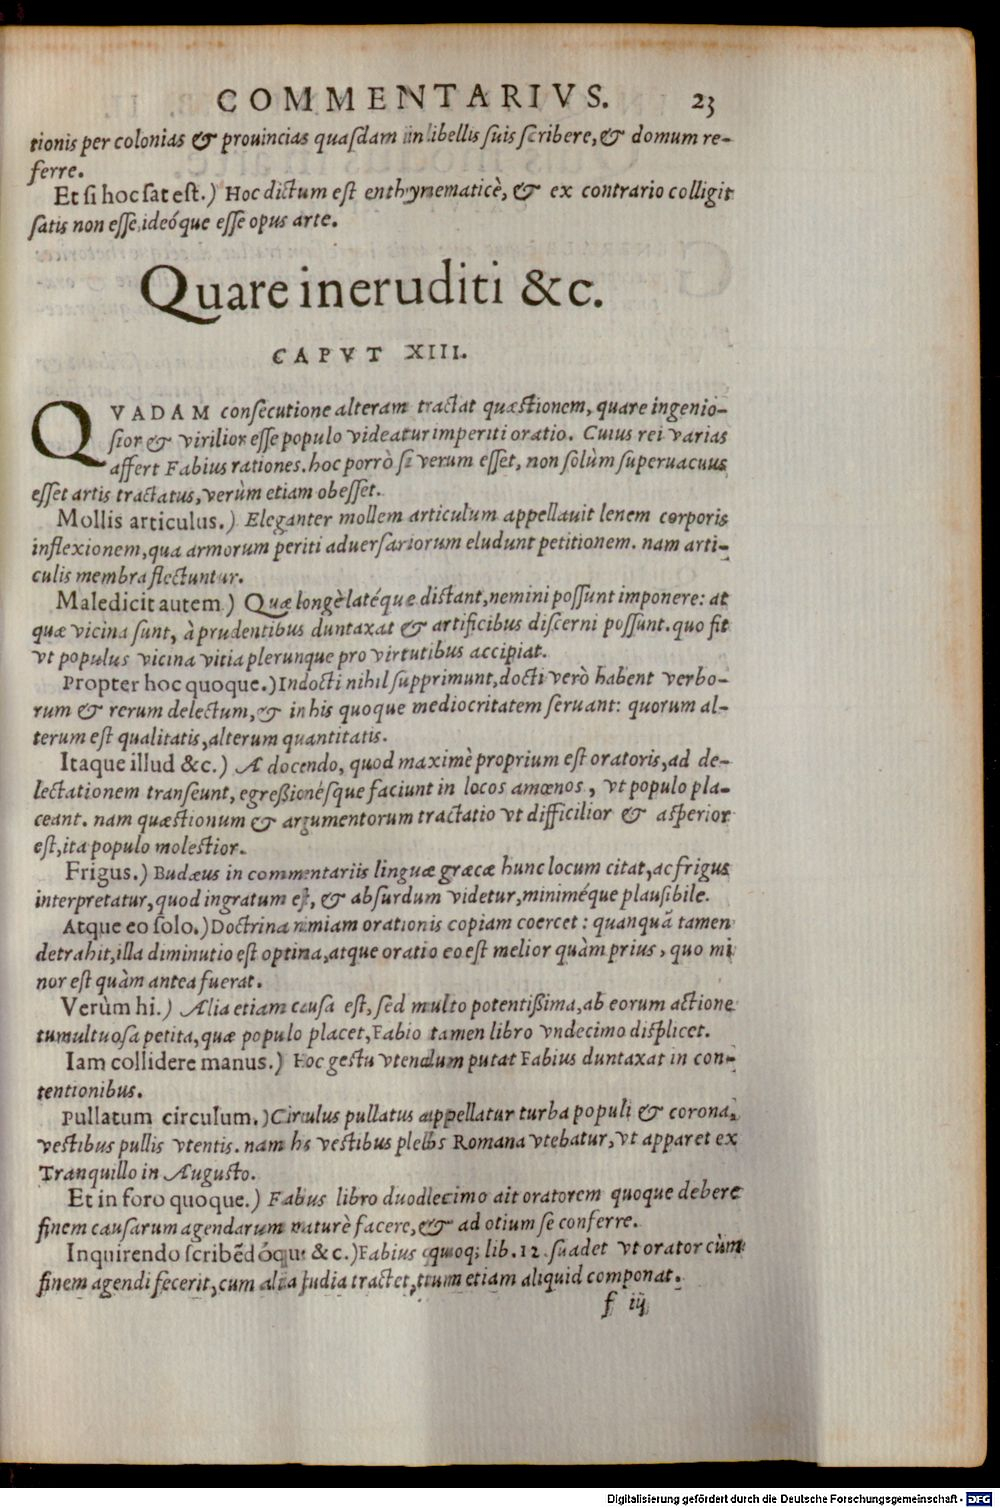 COMMENTARIVS. 23
tionis per colonias & prouincias quasdam in libellis suis scribere, & domum re-
ferre.
Et si hoc sat est.) Hoc dictum est enthymematicè, & ex contrario colligit
satis non esse, ideóque esse opus arte.
Quare ineruditi &c.
CAPVT XIII.
QVADAM consecutione alteram tractat quæstionem, quare ingenio-
sior & virilior esse populo videatur imperiti oratio. Cuius rei varias
affert Fabius rationes. hoc porrò si verum esset, non solùm superuacuus
esset artis tractatus, verùm etiam obesset.
Mollis articulus.) Eleganter mollem articulum appellauit lenem corporis
inflexionem, qua armorum periti aduersariorum eludunt petitionem. nam arti-
culis membra flectuntur.
Maledicit autem) Quæ longè latéque distant, nemini possunt imponere: at
quæ vicina sunt, à prudentibus duntaxat & artificibus discerni possunt. quo fit
vt populus vicina vitia plerunque pro virtutibus accipiat.
Propter hoc quoque.) Indocti nihil supprimunt, docti verò habent verbo-
rum & rerum delectum, & in his quoque mediocritatem seruant: quorum al-
terum est qualitatis, alterum quantitatis.
Itaque illud &c.) A docendo, quod maximè proprium est oratoris, ad de-
lectationem transeunt, egreßionésque faciunt in locos amœnos, vt populo pla-
ceant. nam quæstionum & argumentorum tractatio vt difficilior & asperior
est, ita populo molestior.
Frigus.) Budæus in commentariis linguæ græcæ hunc locum citat, ac frigus
interpretatur, quod ingratum est, & absurdum videtur, miniméque plausibile.
Atque eo solo.) Doctrina nimiam orationis copiam coercet: quanquã tamen
detrahit, illa diminutio est optima, atque oratio eo est melior quàm prius, quo mi
nor est quàm antea fuerat.
Verùm hi.) Alia etiam causa est, sed multo potentißima, ab eorum actione
tumultuosa petita, quæ populo placet, Fabio tamen libro vndecimo displicet.
Iam collidere manus.) Hoc gestu vtendum putat Fabius duntaxat in con-
tentionibus.
Pullatum circulum.) Circulus pullatus appellatur turba populi & corona,
vestibus pullis vtentis. nam his vestibus plebs Romana vtebatur, vt apparet ex
Tranquillo in Augusto.
Et in foro quoque.) Fabius libro duodecimo ait oratorem quoque debere
finem causarum agendarum maturè facere, & ad otium se conferre.
Inquirendo scribẽdóque &c.) Fabius quoq; lib. 12. suadet vt orator cùm
finem agendi fecerit, cum alia studia tractet, tum etiam aliquid componat.
f iij
Digitalisierung gefördert durch die Deutsche Forschungsgemeinschaft - DFG